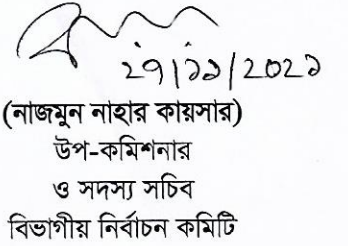 ২৭/১১/২০২১
(নাজমুন নাহার কায়সার)
উপ-কমিশনার
ও সদস্য সচিব
বিভাগীয় নির্বাচন কমিটি